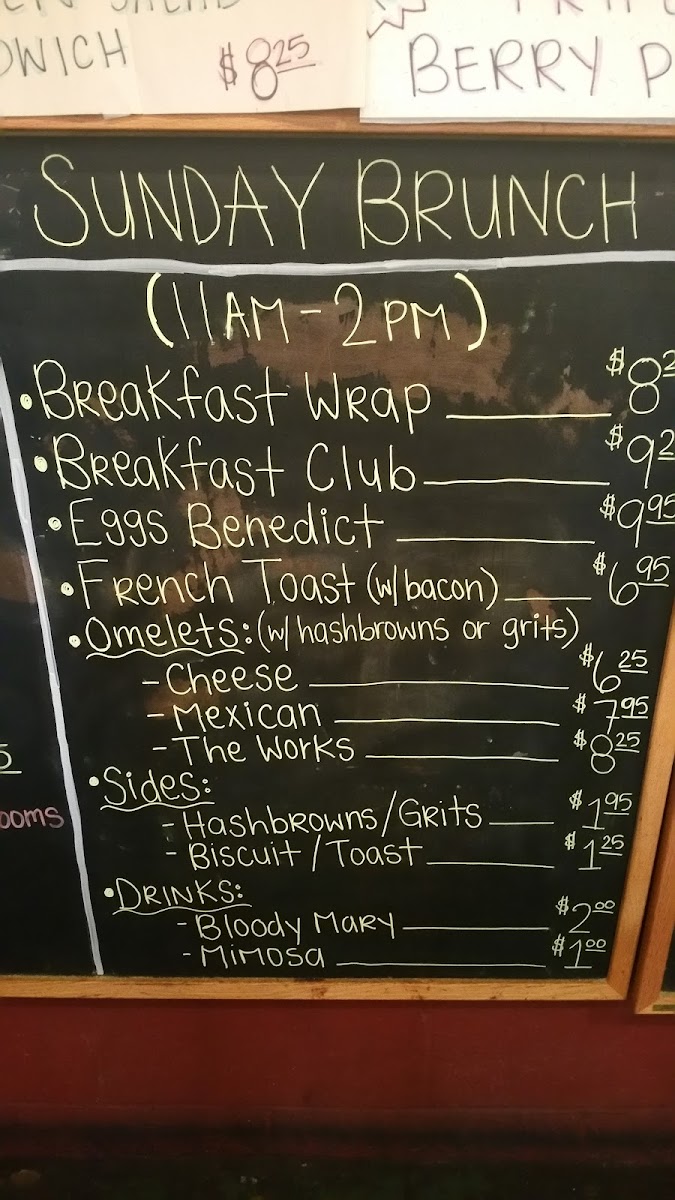 SANDWICH $8.25
BERRY P
SUNDAY BRUNCH
(11AM-2PM)
• Breakfast Wrap $8.2
• Breakfast Club $9.2
• Eggs Benedict $9.95
• French Toast (w/ bacon) $6.95
• Omelets: (w/ hashbrowns or grits)
- Cheese $6.25
- Mexican $7.95
- The Works $8.25
• Sides:
- Hashbrowns/Grits $1.95
- Biscuit/Toast $1.25
• Drinks:
- Bloody Mary $2.00
- Mimosa $1.00
5
ooms